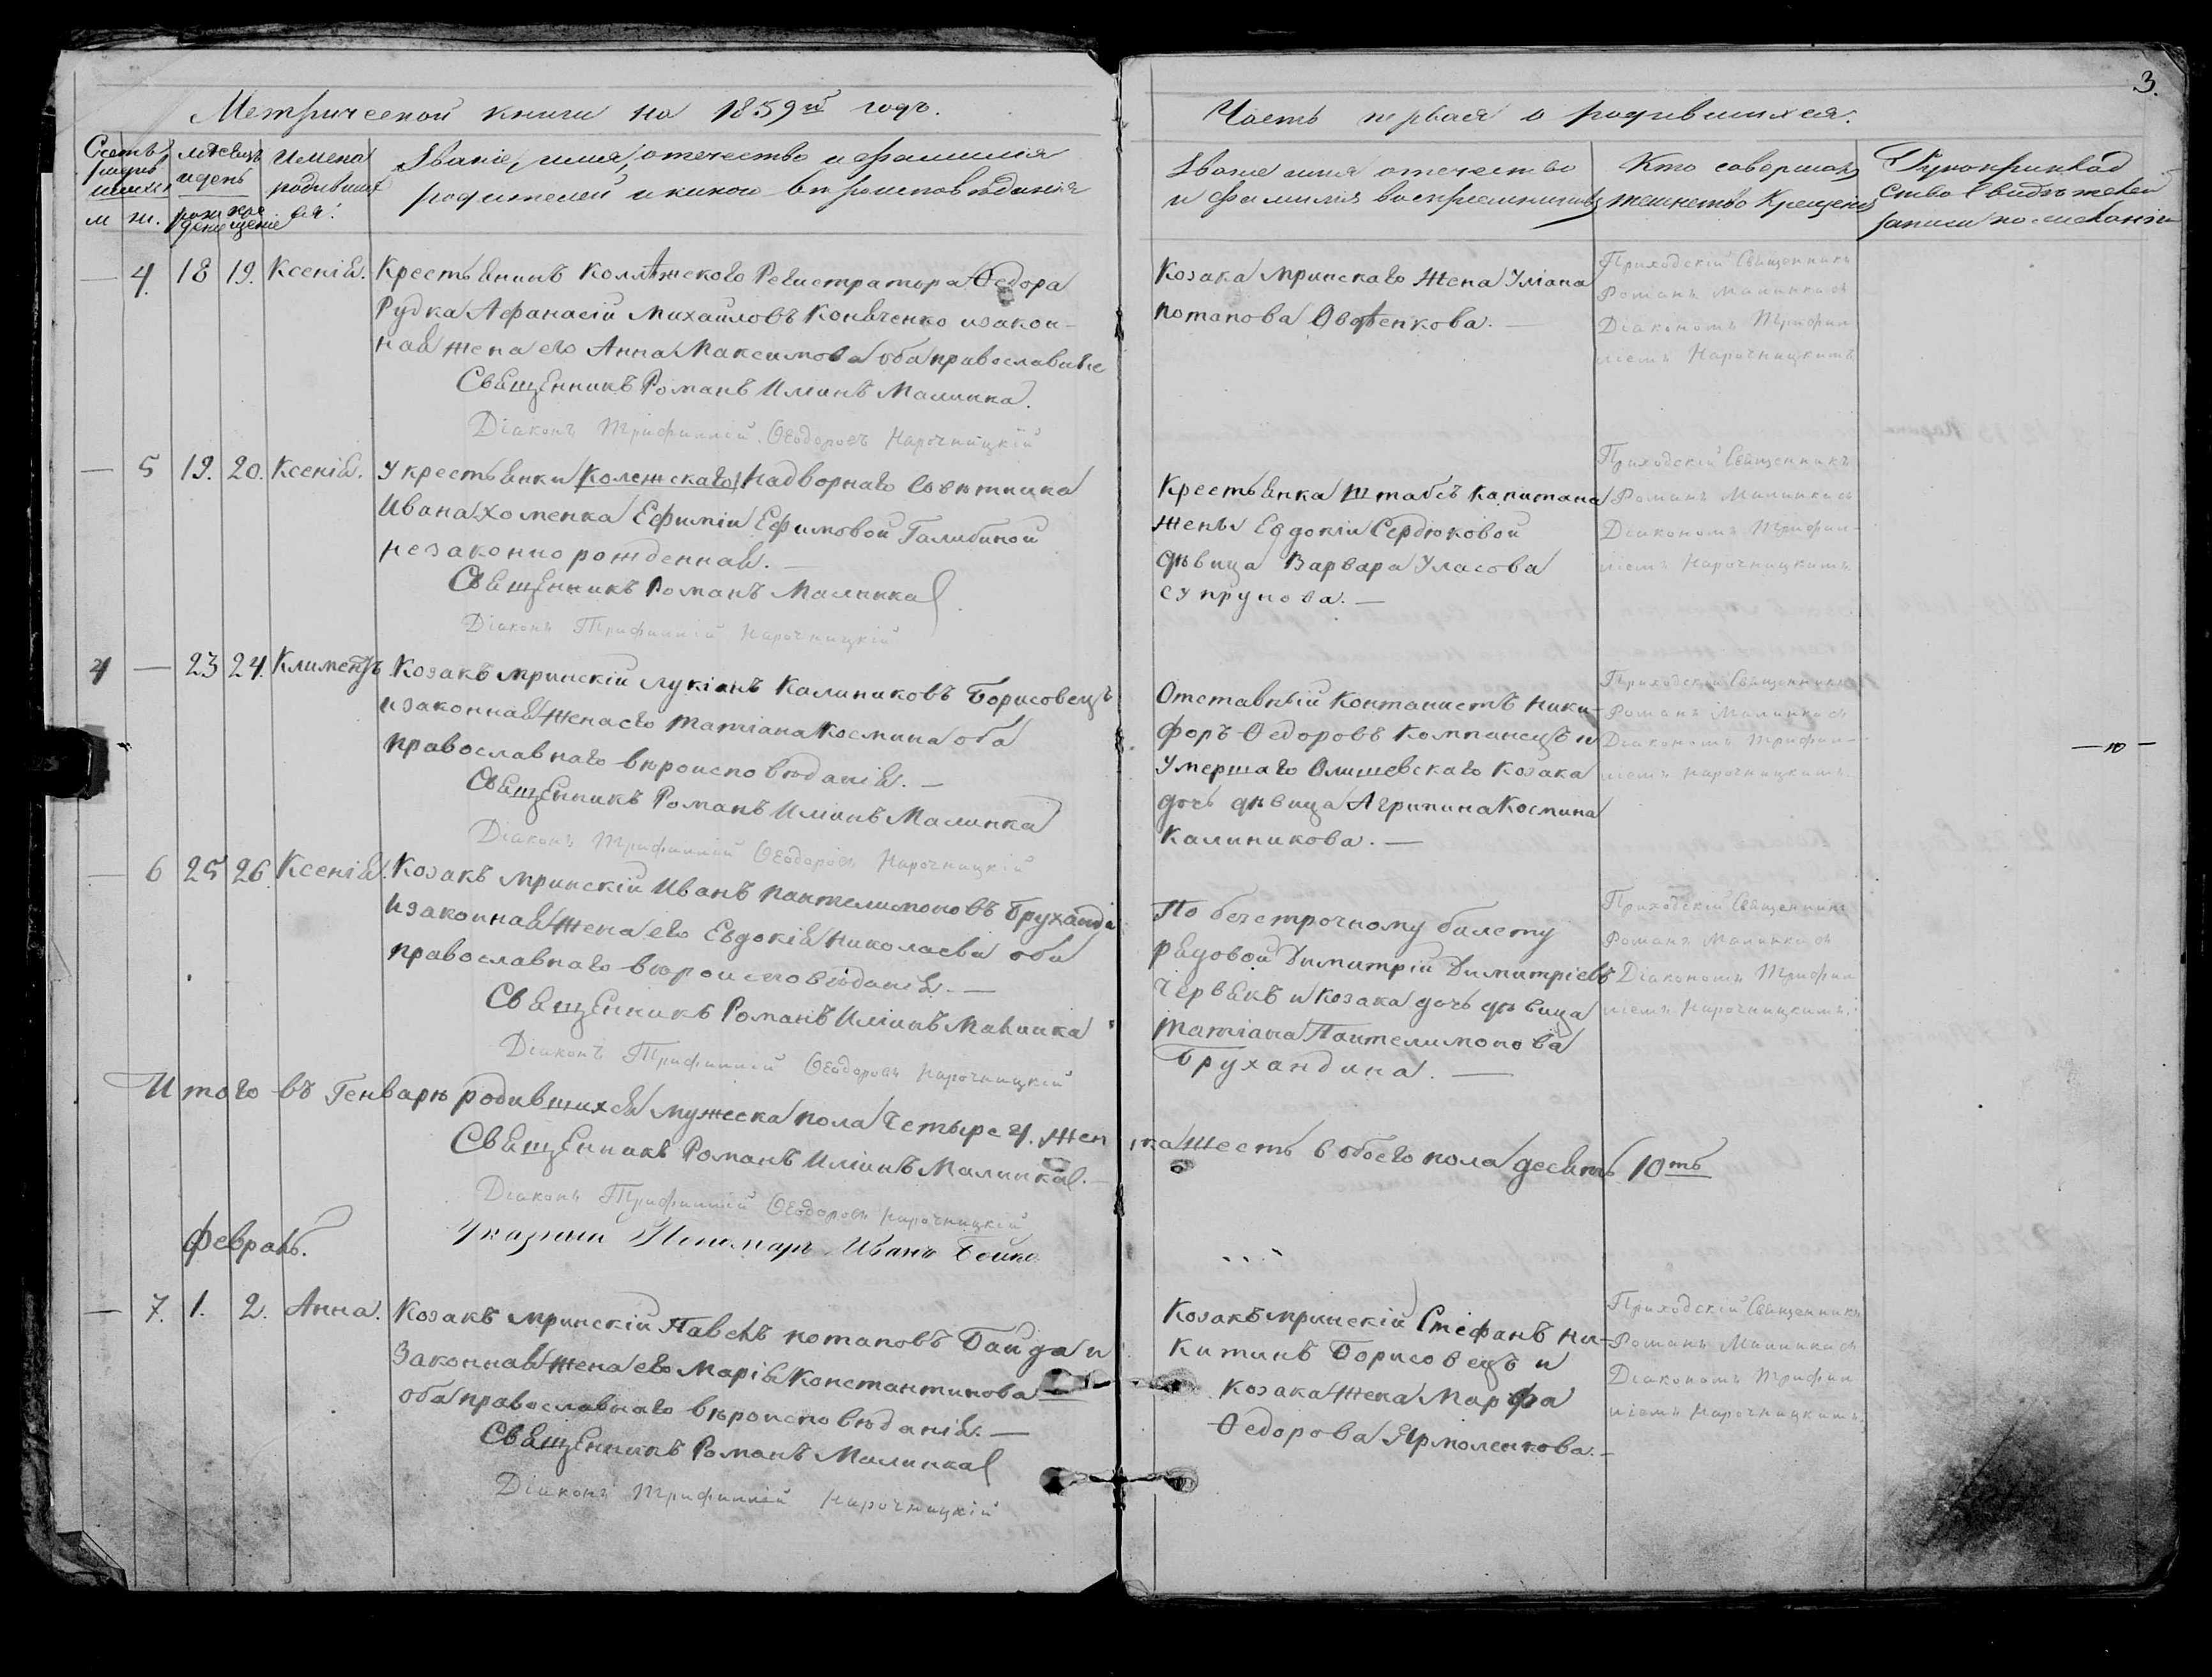 3.
Метрической книги на 1859й годъ.
Часть первая о родившихся.
Счетъ родив шихся
м ж.
мѣсяцъ и день
рож дение кре щение
Имена родивших ся.
Званіе, имя, отечество и фамилия
родителей и какого вѣроисповѣданія
Званіе имя отечество
и фамилия воспрiемниковъ
Кто совершалъ
таинство Крещенія
Рукоприклад
ство свидѣтелей
записи по желанію
— 4. 18 19. Ксенія. Крестьянинъ Коллѣжскаго Регистратора Ѳедора
Рудка Афанасій Михайловъ Коняченко и закон-
ная жена его Анна Максимова оба православные
Священникъ Романъ Илiинъ Малинка.
Діаконъ Трифиллій Ѳеодоровъ Нарочницкій
Козака Мринскаго Жена Уліана
Потапова
Приходскій Священникъ
Романъ Малинка съ
Діакономъ Трифил
ліемъ Нарочницкимъ
— 5 19. 20. Ксенія. У крестьянки Колежскаго Надворнаго Совѣтника
Ивана Хоменка Ефиміи Ефимовой Галибиной
незаконно рожденная. —
Священникъ Романъ Малинка
Діаконъ Трифиллій Нарочницкій
Крестьянка Штабсъ Капитана
жены Евдокіи Сердюковой
дѣвица Варвара Уласова
Супрунова. —
Приходскій Священникъ
Романъ Малинка съ
Діакономъ Трифил-
ліемъ Нарочницкимъ.
4 — 23 24. Климентъ. Козакъ Мринскій Лукіанъ Калиниковъ Борисовецъ
и законная жена его Татіана Космина оба
православнаго вѣроисповѣданія. —
Священникъ Романъ Илiинъ Малинка
Діаконъ Трифиллій Ѳеодоровъ Нарочницкій
Отставный Контанистъ Ники-
форъ Ѳедоровъ Компанецъ и
умершаго Олишевскаго Козака
дочь дѣвица Агрипина Космина
Калиникова. —
Приходскій Священникъ
Романъ Малинка съ
Діакономъ Трифил-
ліемъ Нарочницкимъ.
— 10 —
— 6 25 26. Ксенія. Козакъ Мринскій Иванъ Пантелимоновъ Бруханда
и законная жена его Евдокія Николаева оба
православнаго вѣроисповѣданія. —
Священникъ Романъ Илiинъ Малинка
Діаконъ Трифиллій Ѳеодоровъ Нарочницкій
По безстрочному билету
рядовой Димитрій Димитріевъ
Червякъ и Козака дочь дѣвица
Татіана Пантелимонова
Брухандина. —
Приходскій Священникъ
Романъ Малинка съ
Діакономъ Трифил
ліемъ Нарочницкимъ.
Итого въ Генварѣ родившихся мужеска пола Четыре 4. Жен ска Шесть 6 обоего пола десять 10ть
Священникъ Романъ Илiинъ Малинка. —
Діаконъ Трифиллій Ѳеодоровъ Нарочницкій
Указный Пономарь Иванъ Бойко
Февраль.
— 7. 1. 2. Анна. Козакъ Мринскій Павелъ Потаповъ Байда и
Законная жена его Марія Константинова
оба православнаго вѣроисповѣданія. —
Священникъ Романъ Малинка
Діаконъ Трифиллій Нарочницкій
Козакъ Мринскій Стефанъ Ни-
китинъ Борисовецъ и
Козака жена Марфа
Ѳедорова Ярмоленкова. —
Приходскій Священникъ
Романъ Малинка съ
Діакономъ Трифил
ліемъ Нарочницкимъ.